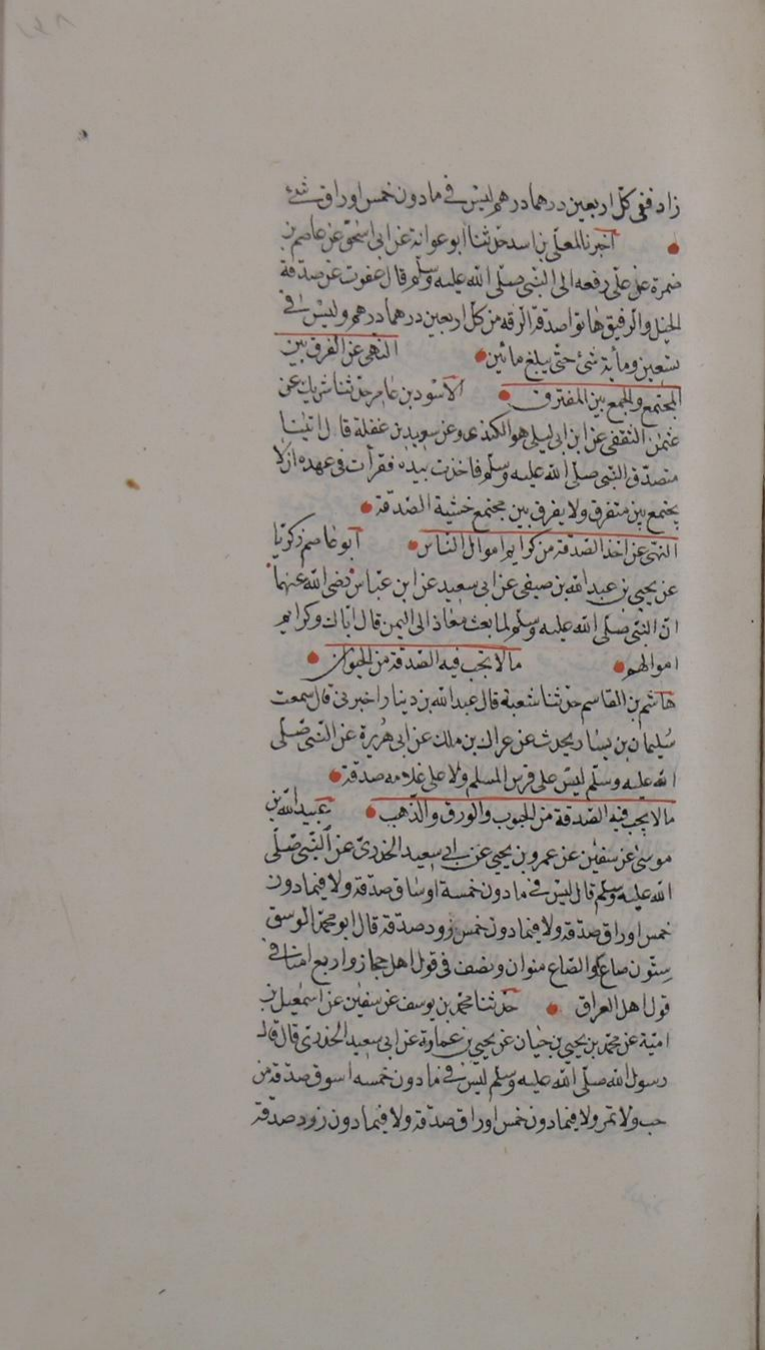 زاد ففى كل اربعين درهما درهم ليس فى ما دون خمس اوراق شئ
اخبرنا المعلى بن اسد حدثنا ابو عوانة عن ابى اسحق عن عاصم بن
ضمرة عن على رفعه الى النبى صلى الله عليه وسلم قال عفوت عن صدقة
الخيل والرقيق هاتوا صدقة الرقه من كل اربعين درهما درهم وليس فى
تسعين ومأية شئ حتى يبلغ مأتين النهى عن الفرق بين
المجتمع والجمع بين المفترق الاسود بن عامر حدثنا شريك عن
عثمن الثقفى عن ابن ابى ليلى هو الكندى وعن سويد بن غفلة قال اتينا
مصدق النبى صلى الله عليه وسلم فاخذت بيده فقرأت فى عهده ان لا
يجتمع بين متفرق ولا يفرق بين مجتمع خشية الصدقة
النهى عن اخذ الصدقة من كرايم اموال الناس ابو عاصم زكريا
عن يحيى بن عبد الله بن صيفى عن ابى سعيد عن ابن عباس رضى الله عنهما
ان النبى صلى الله عليه وسلم لما بعث معاذ الى اليمن قال اياك وكرايم
اموالهم ما لا يجب فيه الصدقة من الحيوان
هاشم بن القاسم حدثنا شعبة قال عبد الله بن دينار اخبرنى قال سمعت
سليمان بن يسار يحدث عن عراك بن ملك عن ابى هريرة عن النبى صلى
الله عليه وسلم ليس على فرس المسلم ولا على غلامه صدقة
ما لا يجب فيه الصدقة من الحبوب والورق والذهب عبيد الله بن
موسى عن سفين عن عمرو بن يحيى عن ابى سعيد الخدرى عن النبى صلى
الله عليه وسلم قال ليس فى ما دون خمسة اوساق صدقة ولا فيما دون
خمس اوراق صدقة ولا فيما دون خمس زود صدقة قال ابو محمد الوسق
ستون صاعا والصاع منوان ونصف فى قول اهل حجاز واربع امنا فى
قول اهل العراق حدثنا محمد بن يوسف عن سفين عن اسمعيل بن
امية عن محمد بن يحيى بن حيان عن يحيى بن عماوة عن ابى سعيد الخدرى قال قال
رسول الله صلى الله عليه وسلم ليس فى ما دون خمسه اسوق صدقة من
حب ولا تمر ولا فيما دون خمس اوراق صدقة ولا فيما دون زود صدقة